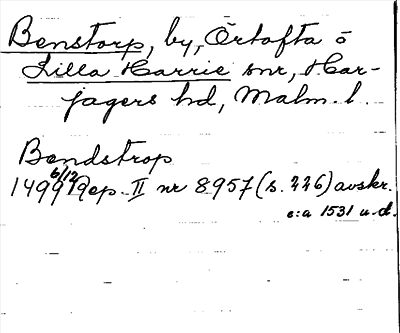 Benstorp, by, Örtofta o
Lilla Harrie snr, Har-
jagers hd, Malm. l.
Bendstrop
1499 6/12 Rep. II nr 8957 (s. 226) avskr.
c:a 1531 u.d.